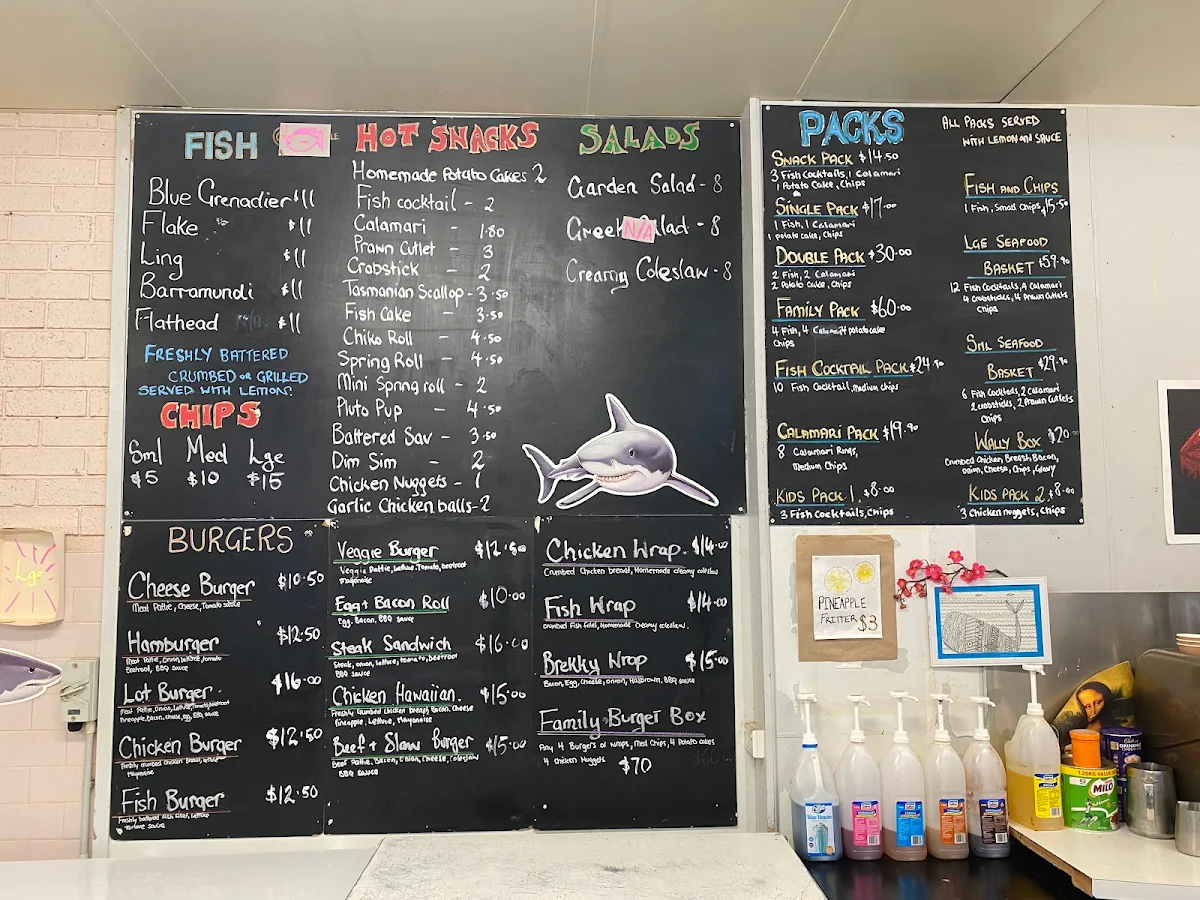 FISH
Blue Grenadier $11
Flake $11
Ling $11
Barramundi $11
Flathead $11
FRESHLY BATTERED
CRUMBED OR GRILLED
SERVED WITH LEMON
CHIPS
Sml Med Lge
$5 $10 $15
HOT SNACKS
Homemade Potato Cakes 2
Fish cocktail - 2
Calamari - 1.80
Prawn Cutlet - 3
Crabstick - 2
Tasmanian Scallop - 3.50
Fish Cake - 3.50
Chiko Roll - 4.50
Spring Roll - 4.50
Mini Spring roll - 2
Pluto Pup - 4.50
Battered Sav - 3.50
Dim Sim - 2
Chicken Nuggets - 1
Garlic Chicken balls - 2
SALADS
Garden Salad - 8
Greek N/A lad - 8
Creamy Coleslaw - 8
PACKS
SNACK PACK $14.50
3 Fish Cocktails, 1 Calamari
1 Potato Cake, Chips
SINGLE PACK $17.00
1 Fish, 1 Calamari
1 potato cake, Chips
DOUBLE PACK $30.00
2 Fish, 2 Calamari
2 Potato Cake, Chips
FAMILY PACK $60.00
4 Fish, 4 Calamari 4 potato cake
Chips
FISH COCKTAIL PACK $24.90
10 Fish Cocktail, medium chips
CALAMARI PACK $19.90
8 Calamari Rings,
Medium Chips
KIDS PACK 1. $8.00
3 Fish Cocktails, Chips
ALL PACKS SERVED
WITH LEMON AND SAUCE
FISH AND CHIPS
1 Fish, Small Chips $15.50
LGE SEAFOOD
BASKET $59.90
12 Fish Cocktails, 4 Calamari
4 Crabsticks, 4 Prawn Cutlets
Chips
SML SEAFOOD
BASKET $29.90
6 Fish Cocktails, 2 Calamari
2 crabsticks, 2 Prawn Cutlets
Chips
WALLY BOX $20
Crumbed Chicken, Breast, Bacon,
Onion, Cheese, Chips, Gravy
KIDS PACK 2. $8.00
3 Chicken nuggets, Chips
BURGERS
Cheese Burger $10.50
Meat Pattie, Cheese, Tomato sauce
Hamburger $12.50
Meat Pattie, Onion, Lettuce, Tomato
Beetroot, BBQ Sauce
Lot Burger $16.00
Meat Pattie, Onion, Lettuce, Tomato, Beetroot
Pineapple, Bacon, Cheese, Egg, BBQ Sauce
Chicken Burger $12.50
Freshly crumbed chicken breast, Lettuce
Mayonaise
Fish Burger $12.50
Freshly battered fish fillet, Lettuce
Tartare sauce
Veggie Burger $12.50
Veggie Pattie, Lettuce, Tomato, beetroot
Mayonaise
Egg + Bacon Roll $10.00
Egg, Bacon, BBQ Sauce
Steak Sandwich $16.00
Steak, onion, Lettuce, tomato, beetroot
BBQ Sauce
Chicken Hawaiian. $15.00
Freshly Crumbed chicken breast, Bacon, Cheese
Pineapple, Lettuce, Mayonaise
Beef + Slaw Burger $15.00
Beef Pattie, Bacon, Onion, Cheese, Coleslaw
BBQ Sauce
Chicken Wrap. $14.00
Crumbed Chicken breast, Homemade creamy coleslaw
Fish Wrap $14.00
Crumbed Fish fillet, Homemade Creamy coleslaw.
Brekky Wrap $15.00
Bacon, Egg, Cheese, onion, Hasbrown, BBQ Sauce
Family Burger Box
Any 4 Burgers or wraps, Med Chips, 4 Potato cakes
4 chicken Nuggets $70
PINEAPPLE
FRITTER $3
Lge
Cadbury
DRINKING
1.25KG VALUE
MILO